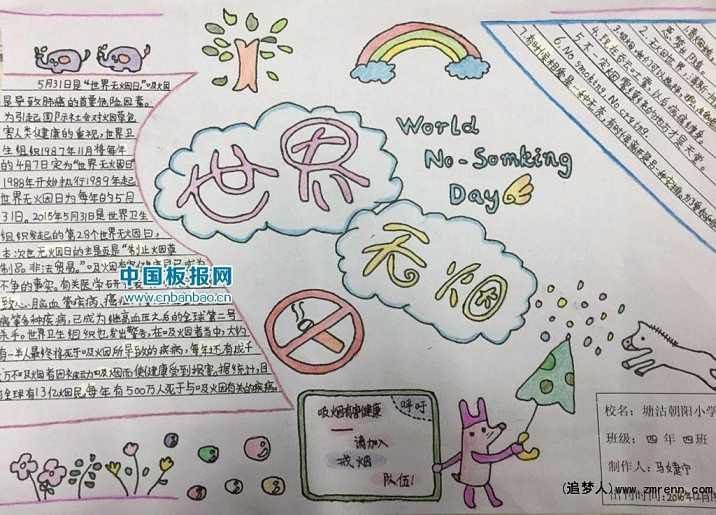 5月31日是"世界无烟日"。吸烟
是导致肺癌的首要危险因素。
为引起国际社会对烟草危
害人类健康的重视，世界卫
生组织1987年11月将每年
的4月7日定为"世界无烟日"
1988年开始执行1989年起
世界无烟日为每年的5月
31日。2015年5月31日是世界卫生
组织发起的第28个世界无烟日，
本次世无烟日的主题是"制止烟草
制品非法贸易。"吸烟有害健康是已成为
不争的事实。有关医学研
致心脑血管疾病、癌
病等多种疾病，已成为继高血压之后的全球第二号
杀手。世界卫生组织也发出警告，在吸烟者当中，大约
有一半人最终将死于吸烟所导致的疾病，每年还有成千
万不吸烟者因被动吸烟而使健康受到损害。据统计，目
全球有13亿烟民，每年有500万人死于与吸烟有关的疾病。
世界
无烟
World
No-Somking
Day
2.无烟世界，清新一
4.现在吞云吐雾，以后病痛缠身
5.不一定烟雾缭绕的地方才是天堂。
6.No smoking.No crazing.
中国板报网
www.cnbanbao.cn
吸烟有害健康
呼吁
请加入
戒烟
队伍!
校名：塘沽朝阳小学
班级：四年四班
制作人：马婕宁
出刊时间：2016年12月
(追梦人)www.zmrenn.com